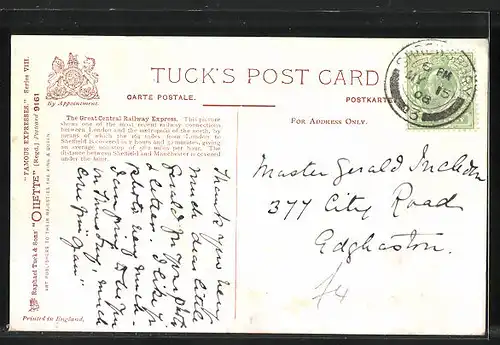 TUCK'S POST CARD
CARTE POSTALE.
POSTKARTE
By Appointment.
FOR ADDRESS ONLY.
The Great Central Railway Express. This picture
shows one of the most recent railway connections
between London and the metropolis of the north, by
means of which the 164 miles from London to
Sheffield is covered in 3 hours and minutes, giving
an average running of miles per hour. The
distance between Sheffield and Manchester is covered
under the hour.
"FAMOUS EXPRESSES" Series VIII.
Raphael Tuck & Sons' "OILETTE" (Regd.) Postcard 9161
ART PUBLISHERS TO THEIR MAJESTIES THE KING & QUEEN
Printed in England.
Thank you very
much dear little
Gerald for your
letter. I like
photo very much
I am
on Thursday, much
love from
PM
JY 15
08
Master Gerald Incledon
377 City Road
Edgbaston.